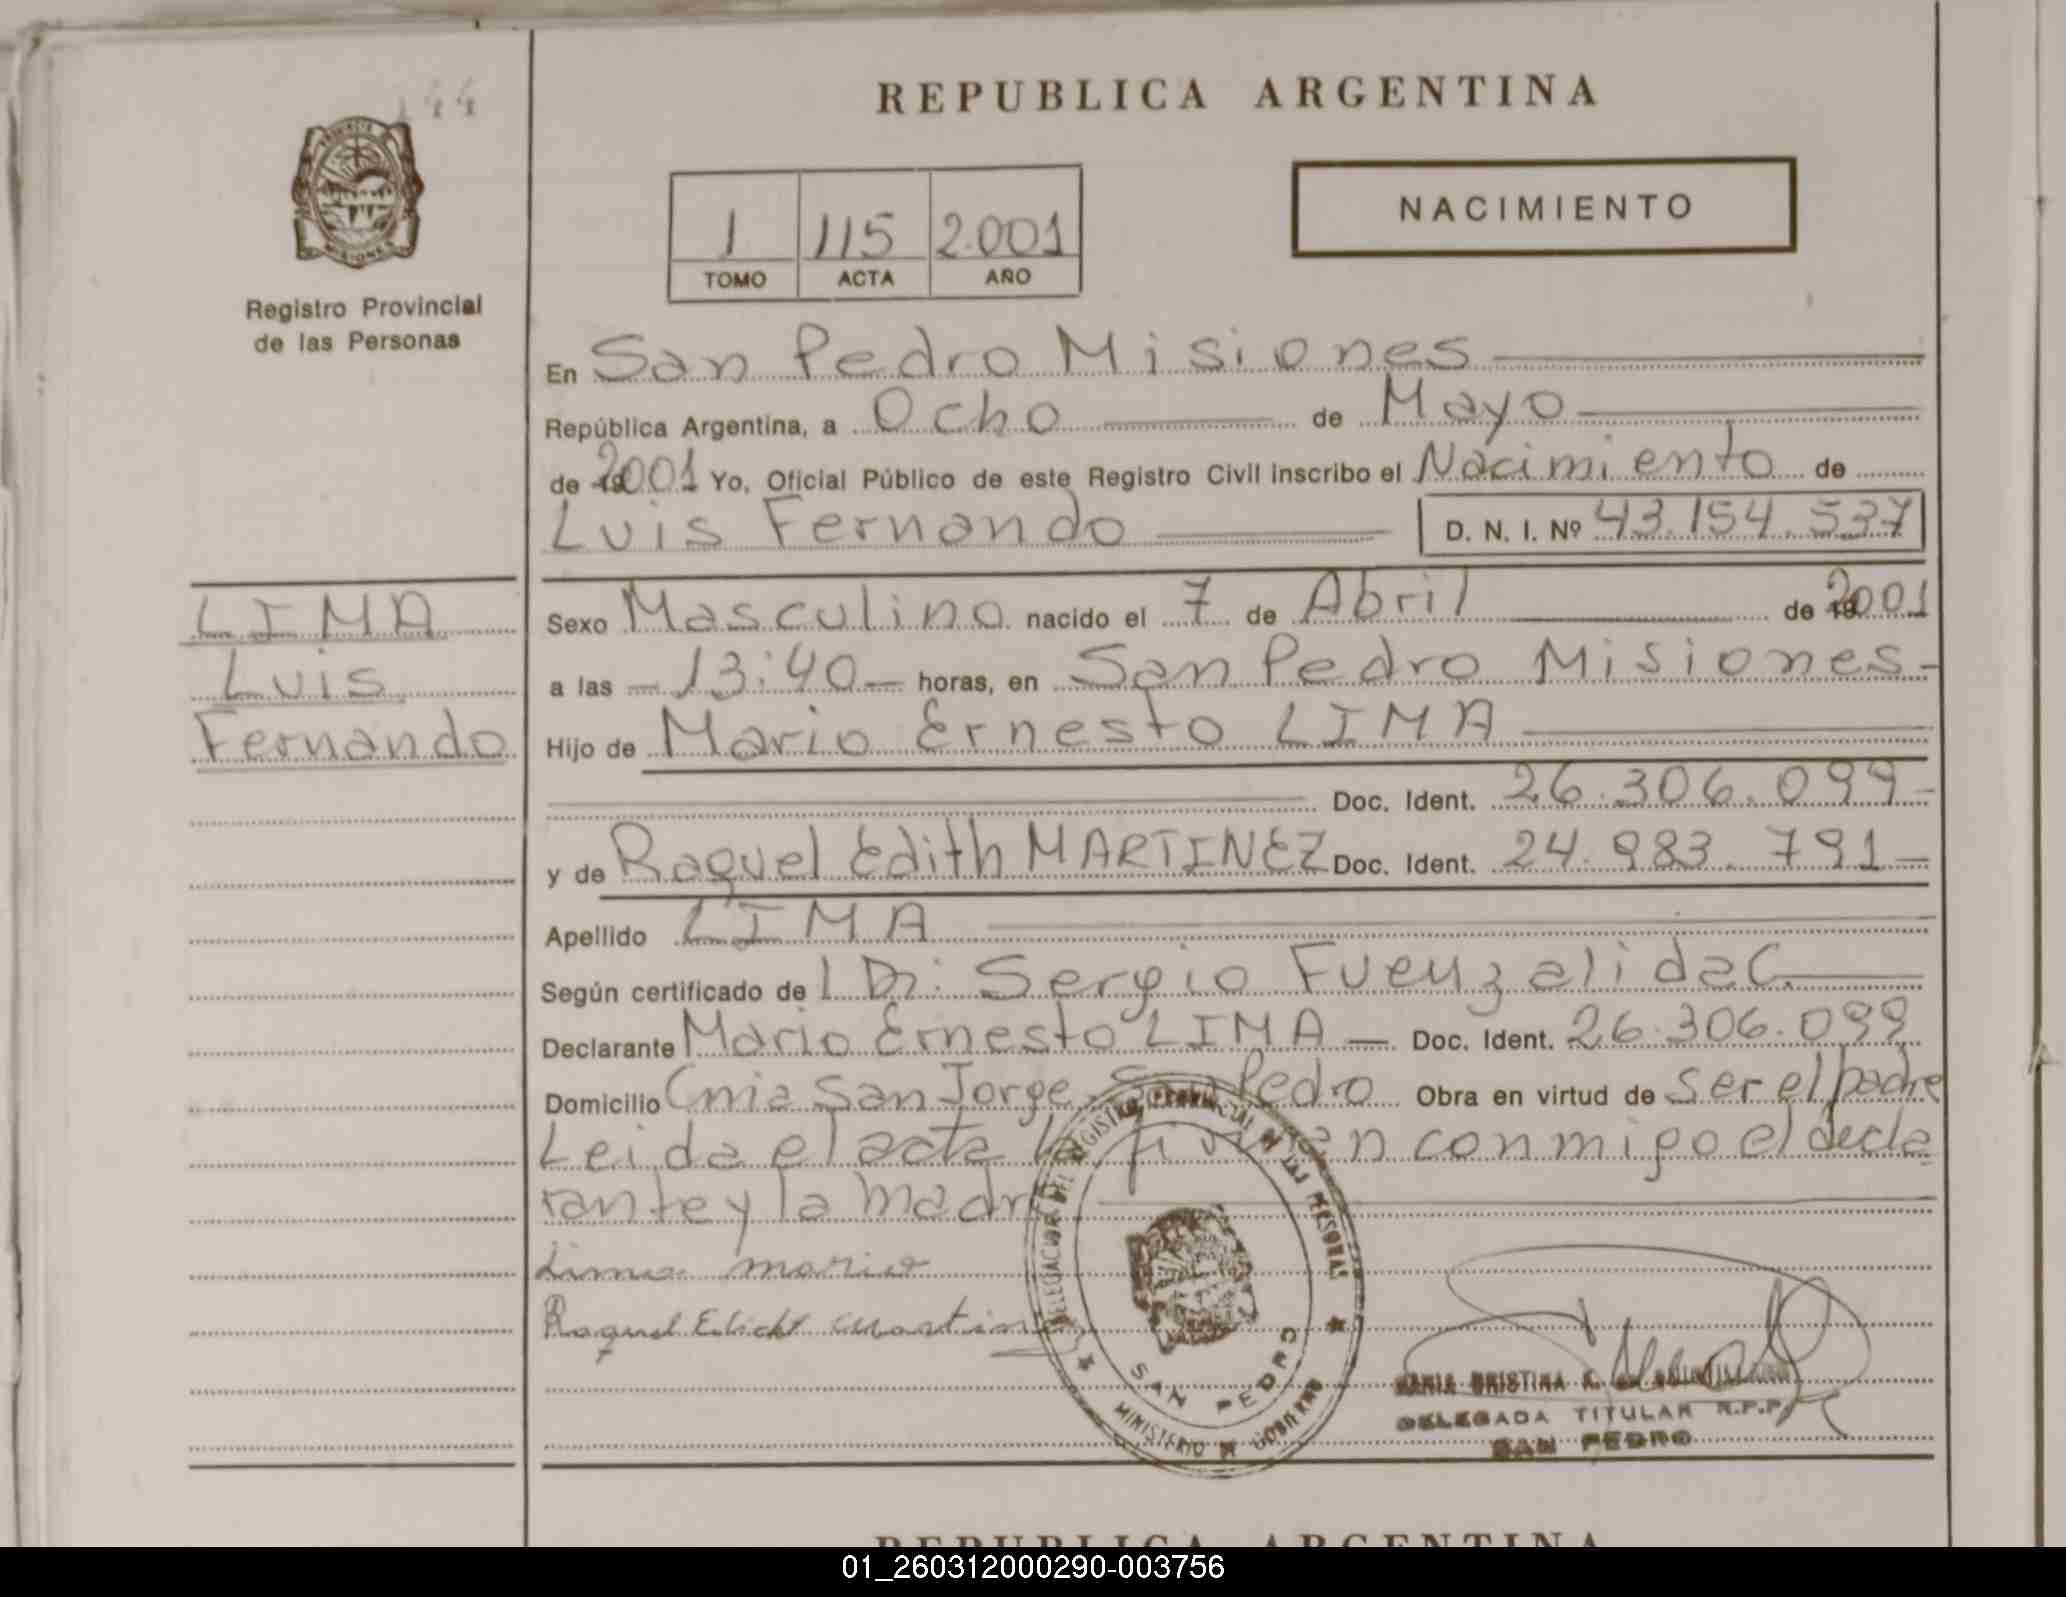 144
REPUBLICA ARGENTINA
NACIMIENTO
1 115 2.001
TOMO ACTA AÑO
Registro Provincial
de las Personas
En San Pedro Misiones
República Argentina, a Ocho de Mayo
de 2001 Yo, Oficial Público de este Registro Civil inscribo el Nacimiento de
Luis Fernando D. N. I. Nº 43.154.537
LIMA
Luis
Fernando
Sexo Masculino nacido el 7 de Abril de 2001
a las -13:40- horas, en San Pedro Misiones-
Hijo de Mario Ernesto LIMA
Doc. Ident. 26.306.099-
y de Raquel Edith MARTINEZ Doc. Ident. 24.983.791-
Apellido LIMA
Según certificado de Dr: Sergio Fuenzalida C.
Declarante Mario Ernesto LIMA - Doc. Ident. 26.306.099
Domicilio Cnia San Jorge. San Pedro Obra en virtud de ser el padre
Leida el acta la firman conmigo el decla
rante y la madre
Lima mario
Raquel Edith Martinez
DELEGACION DEL REGISTRO PROVINCIAL DE LAS PERSONAS
SAN PEDRO
MINISTERIO DE GOBIERNO
MARIA CRISTINA
DELEGADA TITULAR R.P.P.
SAN PEDRO
REPUBLICA ARGENTINA
01_260312000290-003756